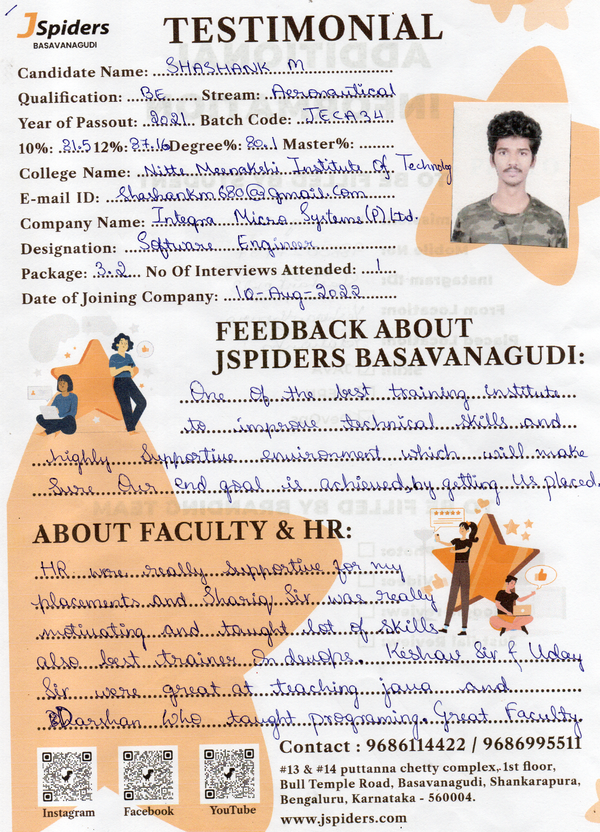 JSpiders
BASAVANAGUDI
TESTIMONIAL
Candidate Name: SHASHANK M
Qualification: BE Stream: Aeronautical
Year of Passout: 2021 Batch Code: JECA34
10%: 81.5 12%: 87.16 Degree%: 80.1 Master%:
College Name: Nitte Meenakshi Institute Of Technology
E-mail ID: shashankm680@gmail.com
Company Name: Integra Micro Systems (P) Ltd.
Designation: Software Engineer
Package: 3.2 No Of Interviews Attended: 1
Date of Joining Company: 10-Aug-2022
FEEDBACK ABOUT
JSPIDERS BASAVANAGUDI:
One of the best training institute
to improve technical skills and
highly supportive environment which will make
sure our end goal is achieved, by getting us placed.
ABOUT FACULTY & HR:
HR were really supportive for my
placements and Shariq Sir was really
motivating and taught alot of skills
also best trainer in devops. Keshav Sir & Uday
Sir were great at teaching java and
Darshan who taught programing. Great Faculty.
Contact : 9686114422 / 9686995511
#13 & #14 puttanna chetty complex, 1st floor,
Bull Temple Road, Basavanagudi, Shankarapura,
Bengaluru, Karnataka - 560004.
Instagram Facebook YouTube
www.jspiders.com